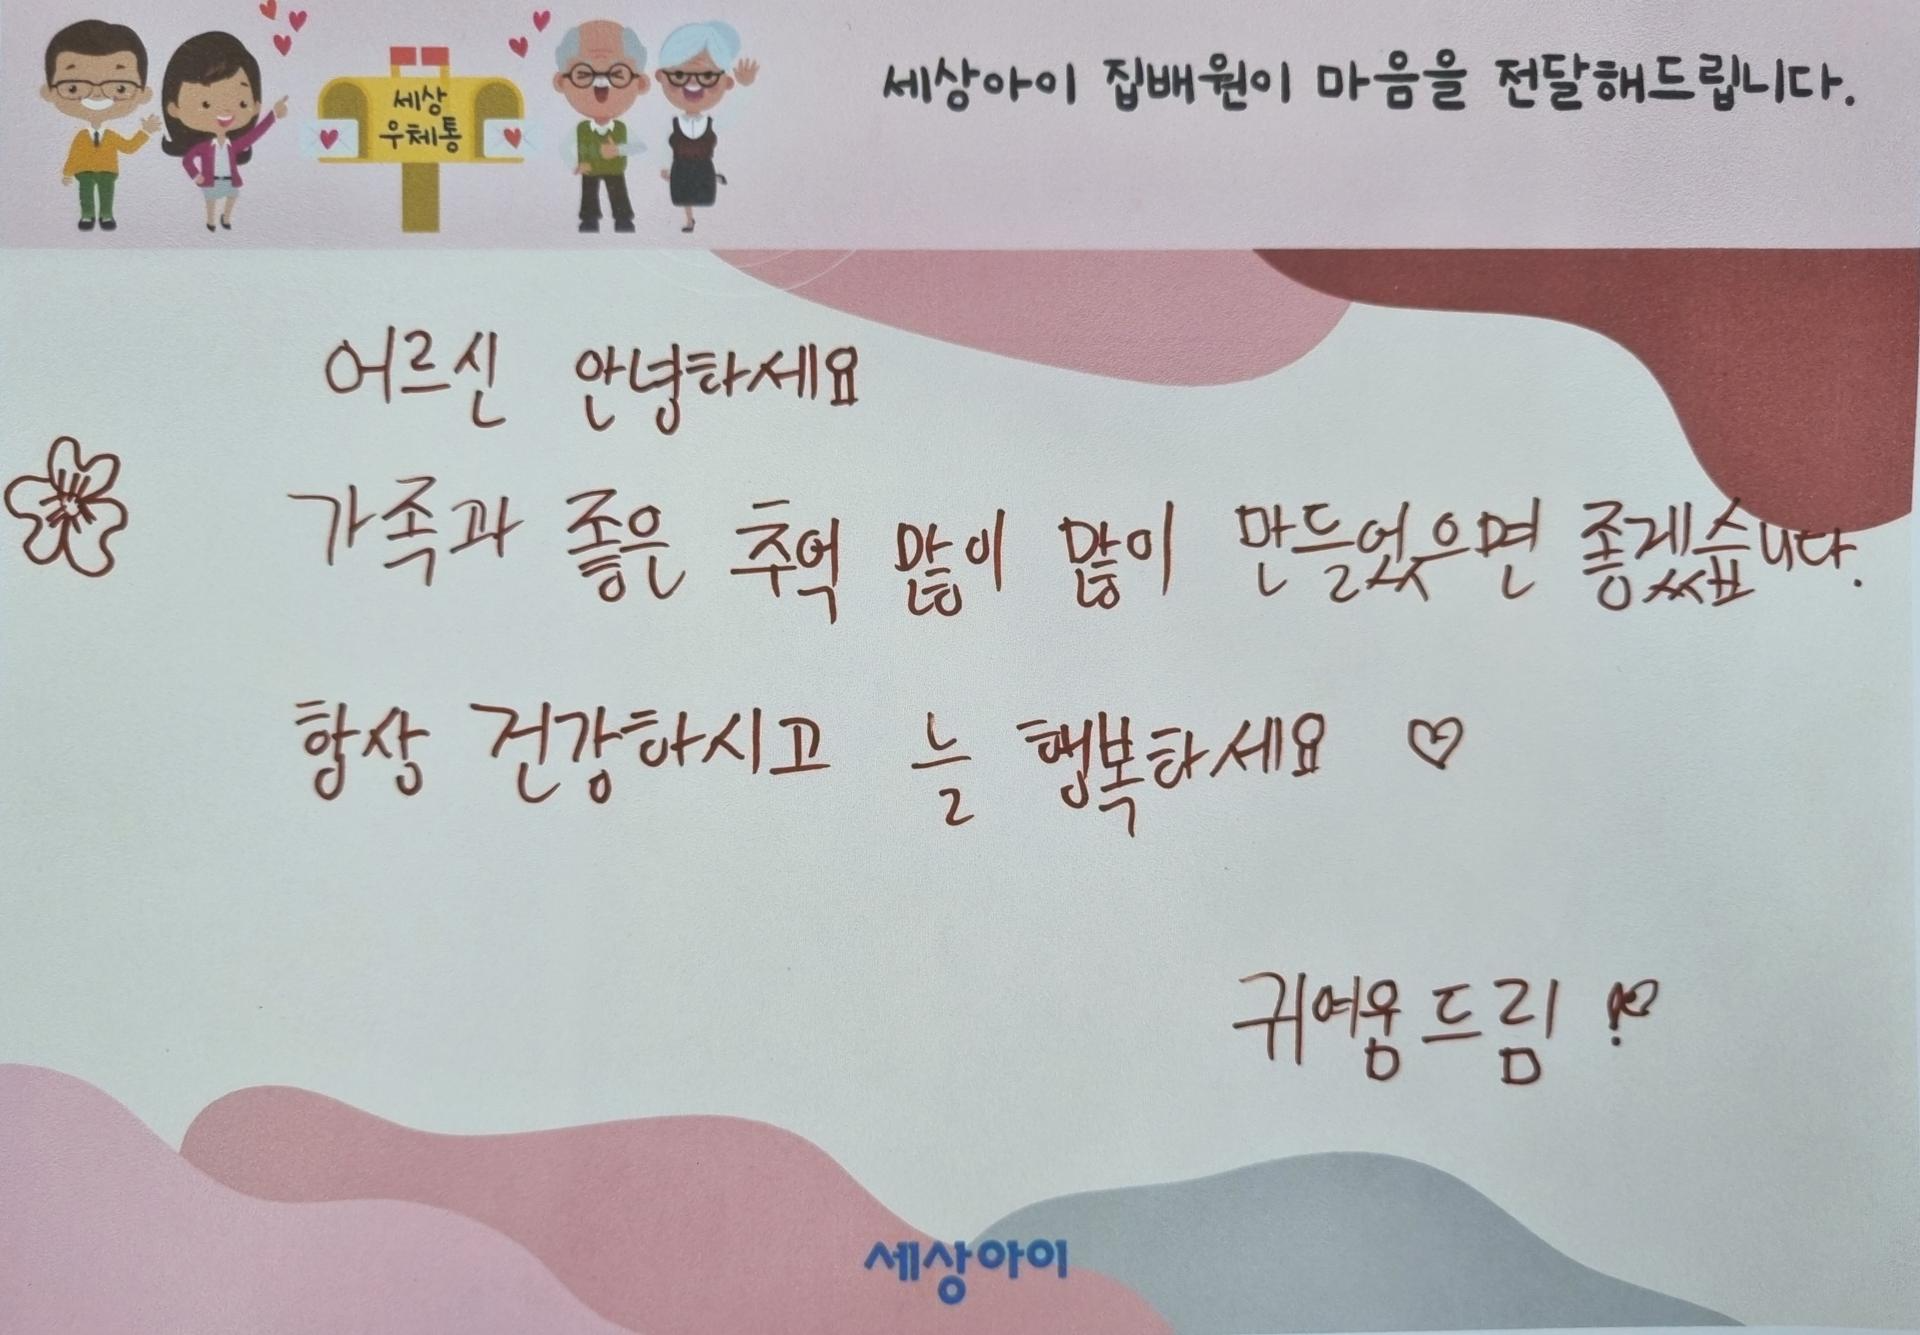 세상
우체통
세상아이 집배원이 마음을 전달해드립니다.
어르신 안녕하세요
가족과 좋은 추억 많이 많이 만들었으면 좋겠습니다.
항상 건강하시고 늘 행복하세요 ♡
귀여움 드림
세상아이